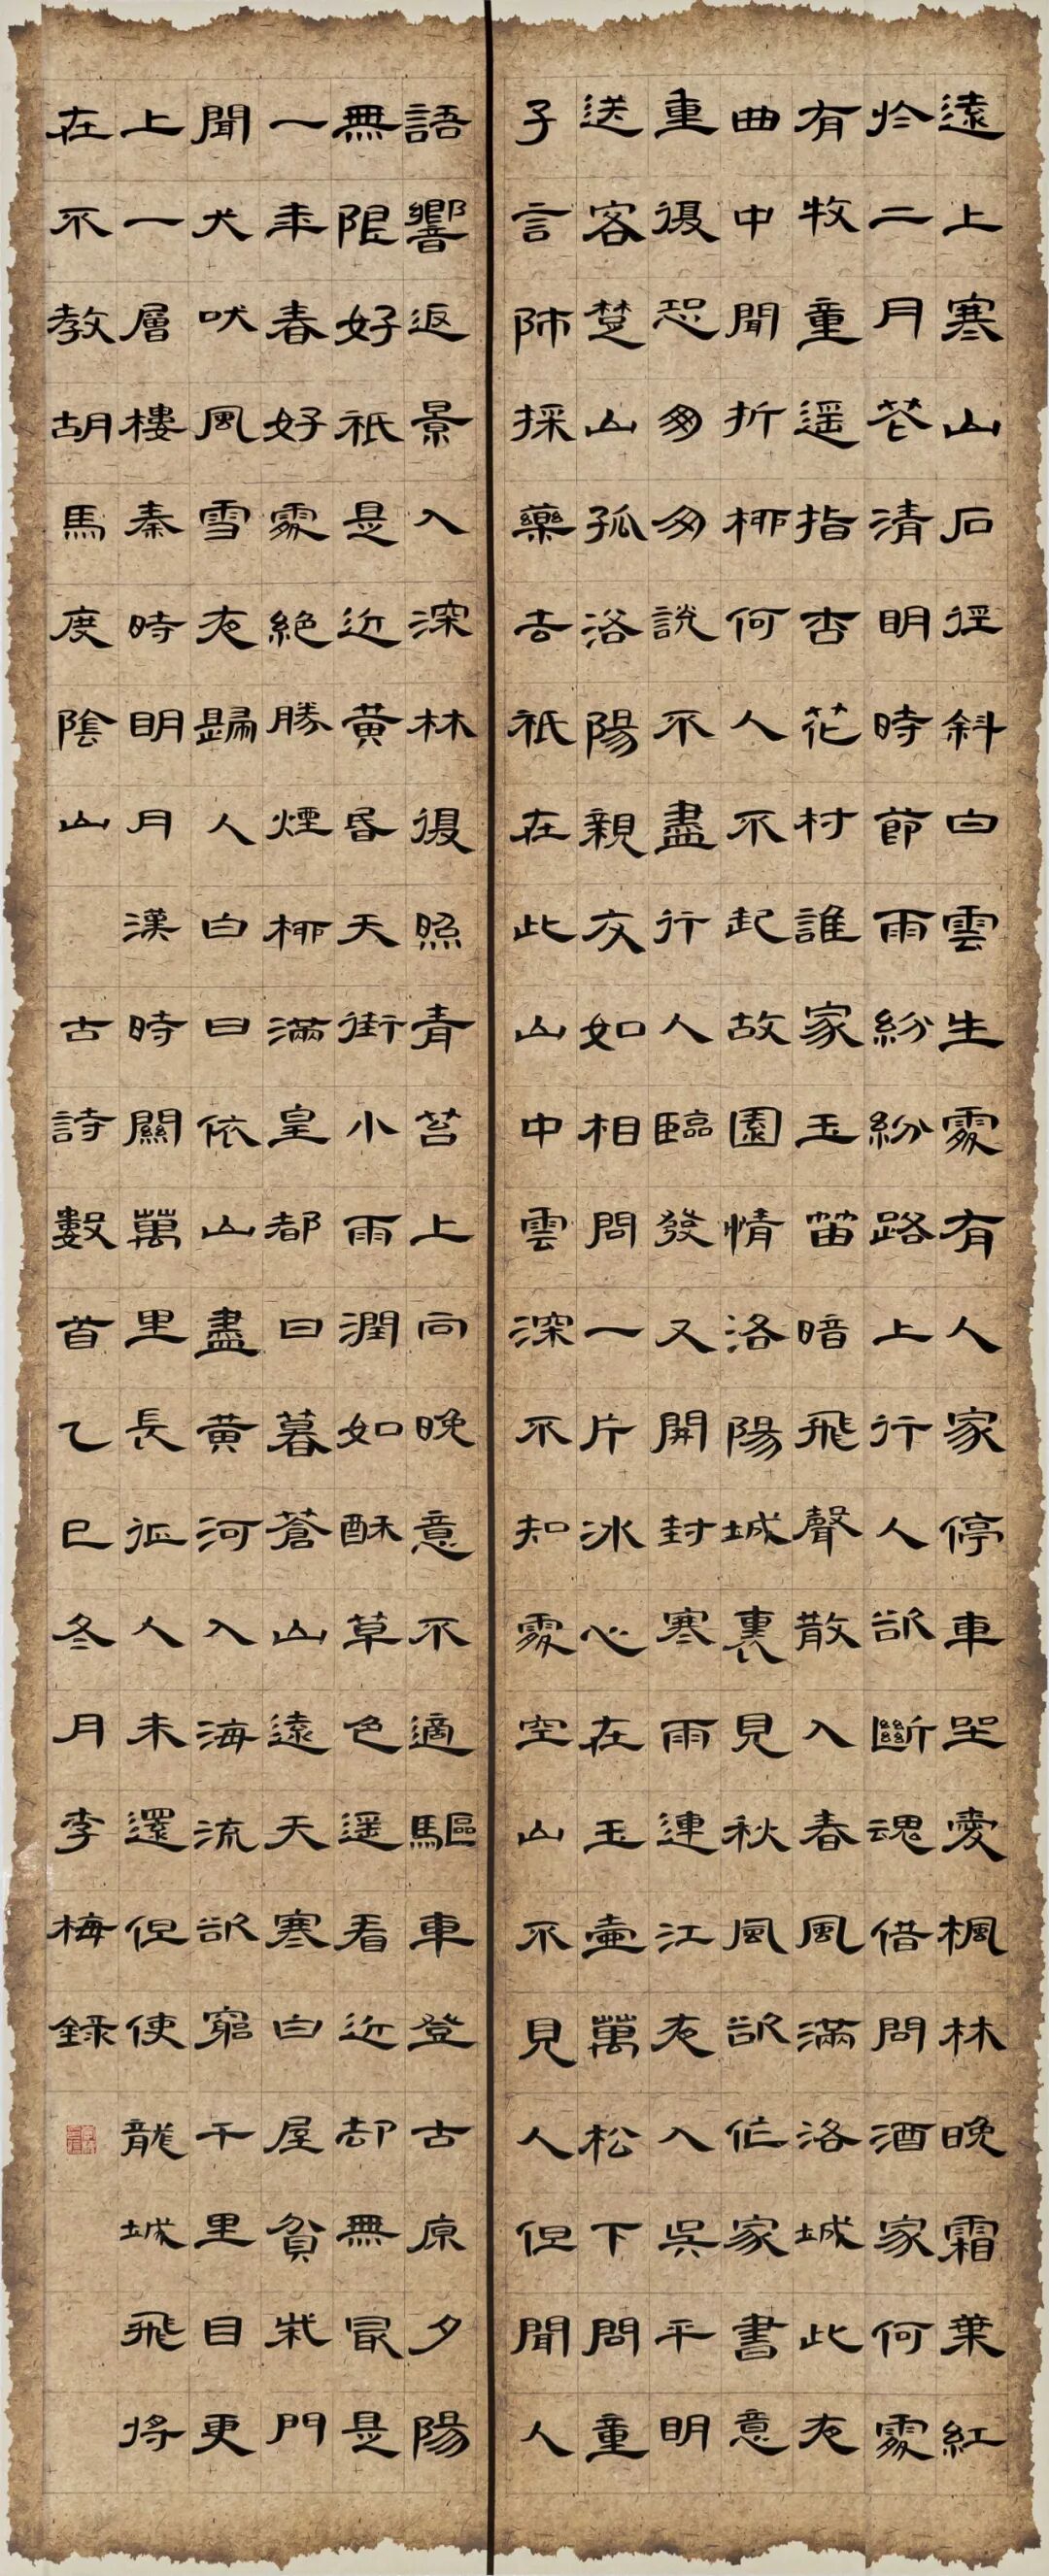 遠上寒山石徑斜白雲生處有人家停車坐愛楓林晚霜葉紅
於二月花清明時節雨紛紛路上行人欲斷魂借問酒家何處
有牧童遥指杏花村誰家玉笛暗飛聲散入春風滿洛城此夜
曲中聞折柳何人不起故園情洛陽城裏見秋風欲作家書意
重復恐匆匆說不盡行人臨發又開封寒雨連江夜入吳平明
送客楚山孤洛陽親友如相問一片冰心在玉壺萬松下問童
子言師採藥去祇在此山中雲深不知處空山不見人但聞人
語響返景入深林復照青苔上向晚意不適驅車登古原夕陽
無限好祇是近黄昏天街小雨潤如酥草色遥看近却無最是
一年春好處絕勝煙柳滿皇都日暮蒼山遠天寒白屋貧柴門
聞犬吠風雪夜歸人白日依山盡黄河入海流欲窮千里目更
上一層樓秦時明月漢時關萬里長征人未還但使龍城飛將
在不教胡馬度陰山 古詩數首乙巳冬月李梅錄